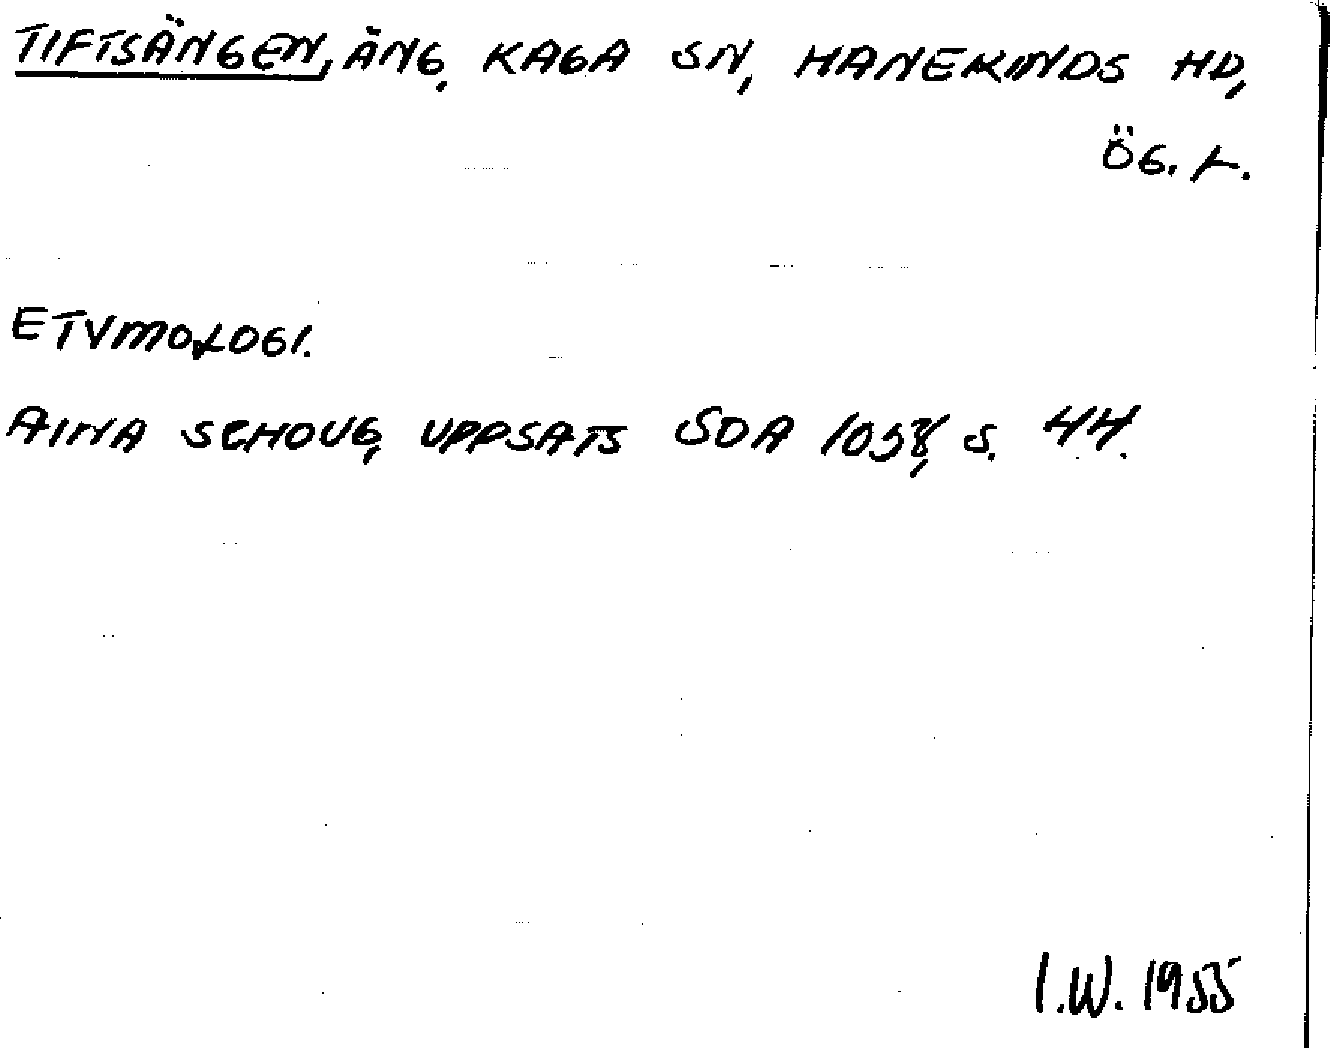 TIFTSÄNGEN, ÄNG, KAGA SN, HANEKINDS HD,
ÖG. L.
ETYMOLOGI.
AINA SCHOUG, UPPSATS SOA 1058, S. 44.
I.W. 1955